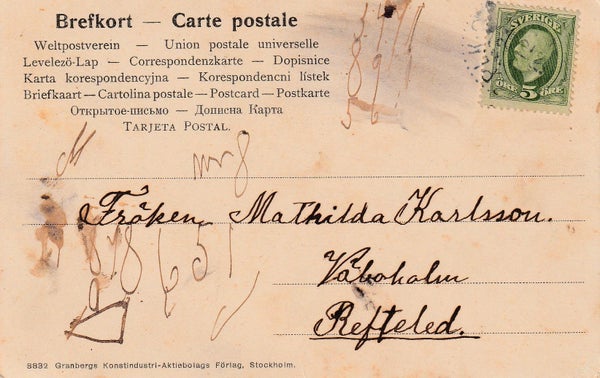 Brefkort — Carte postale
Weltpostverein — Union postale universelle
Levelező-Lap — Correspondenzkarte — Dopisnice
Karta korespondencyjna — Korespondencni lístek
Briefkaart — Cartolina postale — Postcard — Postkarte
Открытое-письмо — Дописна Карта
TARJETA POSTAL.
SVERIGE
ÖRE 5 ÖRE
Fröken Mathilda Karlsson.
Våboholm
Refteled.
8832 Granbergs Konstindustri-Aktiebolags Förlag, Stockholm.